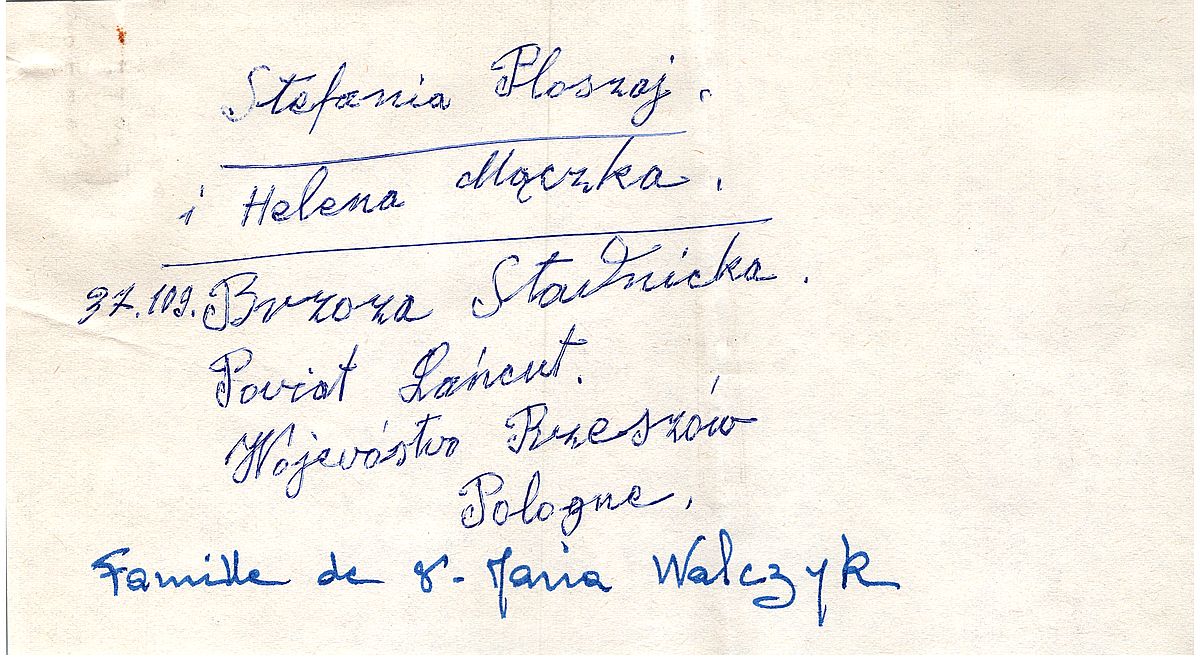 Stefania Ploszaj.
i Helena Mączka.
37.109. Brzoza Stadnicka.
Poviat Łańcut.
Wojevóstvo Rzeszów
Pologne.
Famille de Maria Walczyk